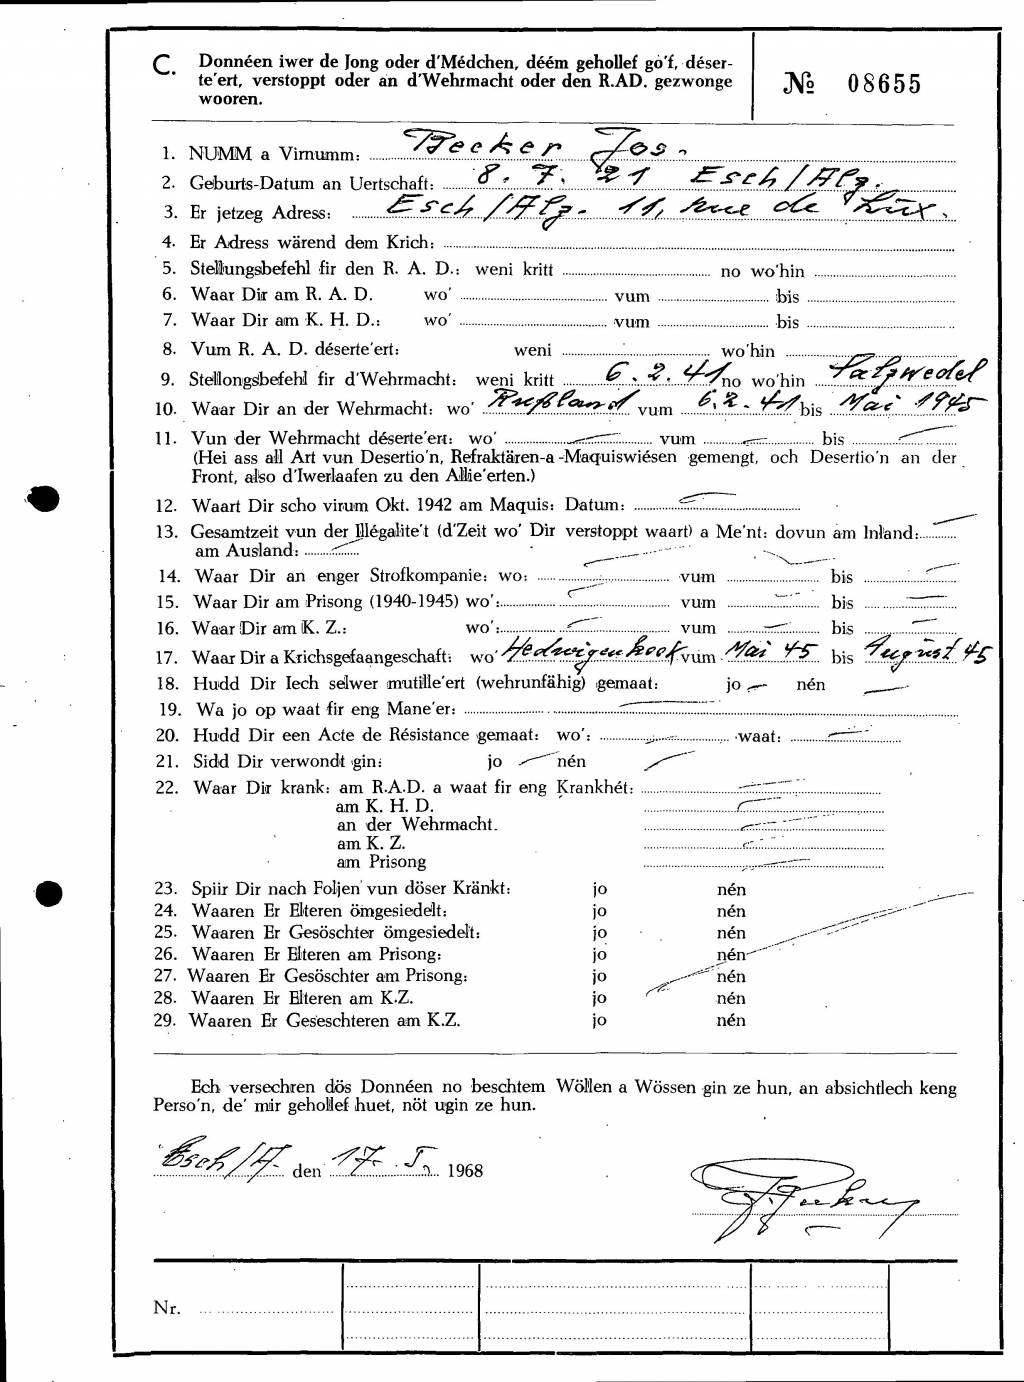 C. Donnéen iwer de Jong oder d'Médchen, déém gehollef go'f, déser-
te'ert, verstoppt oder an d'Wehrmacht oder den R.AD. gezwonge
wooren.
№ 08655
1. NUMM a Virnumm: Becker Jos.
2. Geburts-Datum an Uertschaft: 8. 7. 21 Esch/Alz.
3. Er jetzeg Adress: Esch/Alz. 11, rue de Lux.
4. Er Adress wärend dem Krich:
5. Stellungsbefehl fir den R. A. D.: weni kritt no wo'hin
6. Waar Dir am R. A. D. wo' vum bis
7. Waar Dir am K. H. D.: wo' vum bis
8. Vum R. A. D. déserte'ert: weni wo'hin
9. Stellongsbefehl fir d'Wehrmacht: weni kritt 6. 2. 41 no wo'hin Salzwedel
10. Waar Dir an der Wehrmacht: wo' Rußland vum 6.2.41 bis Mai 1945
11. Vun der Wehrmacht déserte'ert: wo' vum bis
(Hei ass all Art vun Desertio'n, Refraktären-a-Maquiswiésen gemengt, och Desertio'n an der
Front, also d'Iwerlaafen zu den Allie'erten.)
12. Waart Dir scho virum Okt. 1942 am Maquis: Datum:
13. Gesamtzeit vun der Illégalite't (d'Zeit wo' Dir verstoppt waart) a Me'nt: dovun am Inland:
am Ausland:
14. Waar Dir an enger Strofkompanie: wo: vum bis
15. Waar Dir am Prisong (1940-1945) wo': vum bis
16. Waar Dir am K. Z.: wo': vum bis
17. Waar Dir a Krichsgefaangeschaft: wo' Hedwigenkoog vum Mai 45 bis August 45
18. Hudd Dir Iech selwer mutille'ert (wehrunfähig) gemaat: jo nén
19. Wa jo op waat fir eng Mane'er:
20. Hudd Dir een Acte de Résistance gemaat: wo': waat:
21. Sidd Dir verwondt gin: jo nén
22. Waar Dir krank: am R.A.D. a waat fir eng Krankhét:
am K. H. D.
an der Wehrmacht.
am K. Z.
am Prisong
23. Spiir Dir nach Foljen vun döser Kränkt: jo nén
24. Waaren Er Elteren ömgesiedelt: jo nén
25. Waaren Er Gesöschter ömgesiedelt: jo nén
26. Waaren Er Elteren am Prisong: jo nén
27. Waaren Er Gesöschter am Prisong: jo nén
28. Waaren Er Elteren am K.Z. jo nén
29. Waaren Er Geseschteren am K.Z. jo nén
Ech versechren dös Donnéen no beschtem Wöllen a Wössen gin ze hun, an absichtlech keng
Perso'n, de' mir gehollef huet, nöt ugin ze hun.
Esch/A. den 17. I. 1968
Nr.